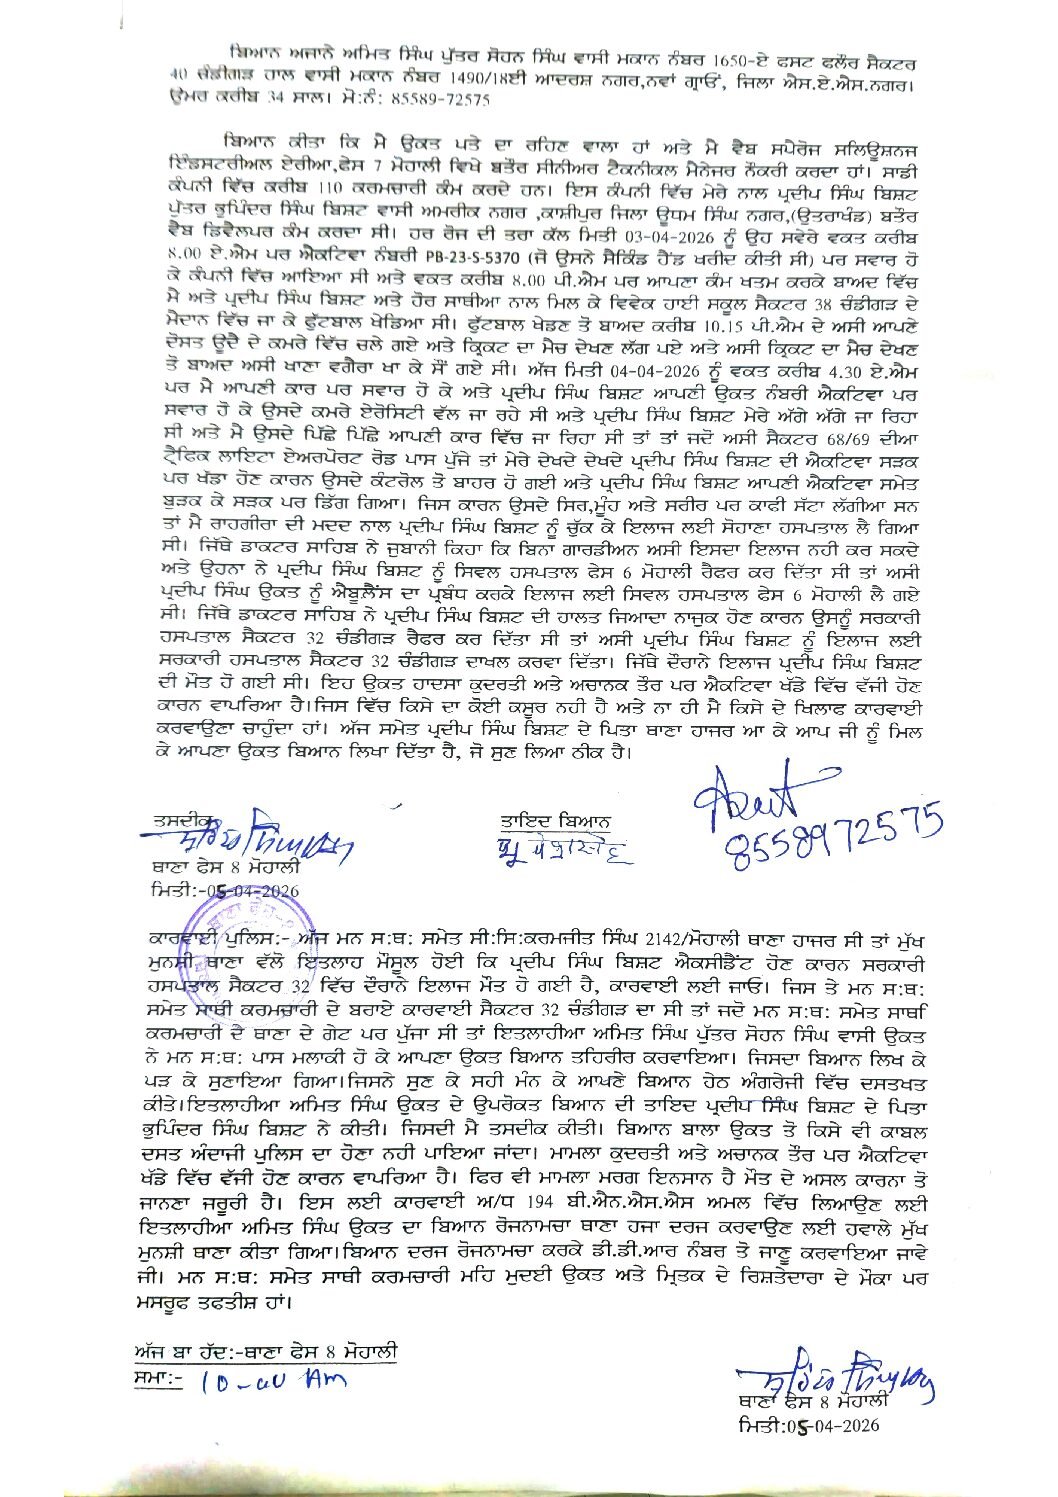 ਬਿਆਨ ਅਜਾਨੇ ਅਮਿਤ ਸਿੰਘ ਪੁੱਤਰ ਸੋਹਨ ਸਿੰਘ ਵਾਸੀ ਮਕਾਨ ਨੰਬਰ 1650-ਏ ਫਸਟ ਫਲੌਰ ਸੈਕਟਰ
40 ਚੰਡੀਗੜ ਹਾਲ ਵਾਸੀ ਮਕਾਨ ਨੰਬਰ 1490/18ਈ ਆਦਰਸ਼ ਨਗਰ,ਨਵਾਂ ਗ੍ਰਾਓਂ, ਜਿਲਾ ਐਸ.ਏ.ਐਸ.ਨਗਰ।
ਉਮਰ ਕਰੀਬ 34 ਸਾਲ। ਮੋ:ਨੰ: 85589-72575
ਬਿਆਨ ਕੀਤਾ ਕਿ ਮੈ ਉਕਤ ਪਤੇ ਦਾ ਰਹਿਣ ਵਾਲਾ ਹਾਂ ਅਤੇ ਮੈ ਵੈਬ ਸਪੈਰੋਜ ਸਲਿਊਸ਼ਨਜ
ਇੰਡਸਟਰੀਅਲ ਏਰੀਆ,ਫੇਸ 7 ਮੋਹਾਲੀ ਵਿਖੇ ਬਤੌਰ ਸੀਨੀਅਰ ਟੈਕਨੀਕਲ ਮੈਨੇਜਰ ਨੌਕਰੀ ਕਰਦਾ ਹਾਂ। ਸਾਡੀ
ਕੰਪਨੀ ਵਿੱਚ ਕਰੀਬ 110 ਕਰਮਚਾਰੀ ਕੰਮ ਕਰਦੇ ਹਨ। ਇਸ ਕੰਪਨੀ ਵਿੱਚ ਮੇਰੇ ਨਾਲ ਪ੍ਰਦੀਪ ਸਿੰਘ ਬਿਸ਼ਟ
ਪੁੱਤਰ ਭੁਪਿੰਦਰ ਸਿੰਘ ਬਿਸ਼ਟ ਵਾਸੀ ਅਮਰੀਕ ਨਗਰ ,ਕਾਸ਼ੀਪੁਰ ਜਿਲਾ ਊਧਮ ਸਿੰਘ ਨਗਰ,(ਉਤਰਾਖੰਡ) ਬਤੌਰ
ਵੈਬ ਡਿਵੈਲਪਰ ਕੰਮ ਕਰਦਾ ਸੀ। ਹਰ ਰੋਜ ਦੀ ਤਰਾ ਕੱਲ ਮਿਤੀ 03-04-2026 ਨੂੰ ਉਹ ਸਵੇਰੇ ਵਕਤ ਕਰੀਬ
8.00 ਏ.ਐਮ ਪਰ ਐਕਟਿਵਾ ਨੰਬਰੀ PB-23-S-5370 (ਜੋ ਉਸਨੇ ਸੈਕਿੰਡ ਹੈਂਡ ਖਰੀਦ ਕੀਤੀ ਸੀ) ਪਰ ਸਵਾਰ ਹੋ
ਕੇ ਕੰਪਨੀ ਵਿੱਚ ਆਇਆ ਸੀ ਅਤੇ ਵਕਤ ਕਰੀਬ 8.00 ਪੀ.ਐਮ ਪਰ ਆਪਣਾ ਕੰਮ ਖਤਮ ਕਰਕੇ ਬਾਅਦ ਵਿੱਚ
ਮੈ ਅਤੇ ਪ੍ਰਦੀਪ ਸਿੰਘ ਬਿਸ਼ਟ ਅਤੇ ਹੋਰ ਸਾਥੀਆ ਨਾਲ ਮਿਲ ਕੇ ਵਿਵੇਕ ਹਾਈ ਸਕੂਲ ਸੈਕਟਰ 38 ਚੰਡੀਗੜ ਦੇ
ਮੈਦਾਨ ਵਿੱਚ ਜਾ ਕੇ ਫੁੱਟਬਾਲ ਖੇਡਿਆ ਸੀ। ਫੁੱਟਬਾਲ ਖੇਡਣ ਤੋ ਬਾਅਦ ਕਰੀਬ 10.15 ਪੀ.ਐਮ ਦੇ ਅਸੀ ਆਪਣੇ
ਦੋਸਤ ਉਦੈ ਦੇ ਕਮਰੇ ਵਿੱਚ ਚਲੇ ਗਏ ਅਤੇ ਕ੍ਰਿਕਟ ਦਾ ਮੈਚ ਦੇਖਣ ਲੱਗ ਪਏ ਅਤੇ ਅਸੀ ਕ੍ਰਿਕਟ ਦਾ ਮੈਚ ਦੇਖਣ
ਤੋ ਬਾਅਦ ਅਸੀ ਖਾਣਾ ਵਗੈਰਾ ਖਾ ਕੇ ਸੌਂ ਗਏ ਸੀ। ਅੱਜ ਮਿਤੀ 04-04-2026 ਨੂੰ ਵਕਤ ਕਰੀਬ 4.30 ਏ.ਐਮ
ਪਰ ਮੈ ਆਪਣੀ ਕਾਰ ਪਰ ਸਵਾਰ ਹੋ ਕੇ ਅਤੇ ਪ੍ਰਦੀਪ ਸਿੰਘ ਬਿਸ਼ਟ ਆਪਣੀ ਉਕਤ ਨੰਬਰੀ ਐਕਟਿਵਾ ਪਰ
ਸਵਾਰ ਹੋ ਕੇ ਉਸਦੇ ਕਮਰੇ ਏਰੋਸਿਟੀ ਵੱਲ ਜਾ ਰਹੇ ਸੀ ਅਤੇ ਪ੍ਰਦੀਪ ਸਿੰਘ ਬਿਸ਼ਟ ਮੇਰੇ ਅੱਗੇ ਅੱਗੇ ਜਾ ਰਿਹਾ
ਸੀ ਅਤੇ ਮੈ ਉਸਦੇ ਪਿੱਛੇ ਪਿੱਛੇ ਆਪਣੀ ਕਾਰ ਵਿੱਚ ਜਾ ਰਿਹਾ ਸੀ ਤਾਂ ਤਾਂ ਜਦੋ ਅਸੀ ਸੈਕਟਰ 68/69 ਦੀਆ
ਟ੍ਰੈਫਿਕ ਲਾਇਟਾ ਏਅਰਪੋਰਟ ਰੋਡ ਪਾਸ ਪੁੱਜੇ ਤਾਂ ਮੇਰੇ ਦੇਖਦੇ ਦੇਖਦੇ ਪ੍ਰਦੀਪ ਸਿੰਘ ਬਿਸ਼ਟ ਦੀ ਐਕਟਿਵਾ ਸੜਕ
ਪਰ ਖੱਡਾ ਹੋਣ ਕਾਰਨ ਉਸਦੇ ਕੰਟਰੋਲ ਤੋ ਬਾਹਰ ਹੋ ਗਈ ਅਤੇ ਪ੍ਰਦੀਪ ਸਿੰਘ ਬਿਸ਼ਟ ਆਪਣੀ ਐਕਟਿਵਾ ਸਮੇਤ
ਬੁੜਕ ਕੇ ਸੜਕ ਪਰ ਡਿੱਗ ਗਿਆ। ਜਿਸ ਕਾਰਨ ਉਸਦੇ ਸਿਰ,ਮੂੰਹ ਅਤੇ ਸਰੀਰ ਪਰ ਕਾਫੀ ਸੱਟਾ ਲੱਗੀਆ ਸਨ
ਤਾਂ ਮੈ ਰਾਹਗੀਰਾ ਦੀ ਮਦਦ ਨਾਲ ਪ੍ਰਦੀਪ ਸਿੰਘ ਬਿਸ਼ਟ ਨੂੰ ਚੁੱਕ ਕੇ ਇਲਾਜ ਲਈ ਸੋਹਾਣਾ ਹਸਪਤਾਲ ਲੈ ਗਿਆ
ਸੀ। ਜਿੱਥੇ ਡਾਕਟਰ ਸਾਹਿਬ ਨੇ ਜੁਬਾਨੀ ਕਿਹਾ ਕਿ ਬਿਨਾ ਗਾਰਡੀਅਨ ਅਸੀ ਇਸਦਾ ਇਲਾਜ ਨਹੀ ਕਰ ਸਕਦੇ
ਅਤੇ ਉਹਨਾ ਨੇ ਪ੍ਰਦੀਪ ਸਿੰਘ ਬਿਸ਼ਟ ਨੂੰ ਸਿਵਲ ਹਸਪਤਾਲ ਫੇਸ 6 ਮੋਹਾਲੀ ਰੈਫਰ ਕਰ ਦਿੱਤਾ ਸੀ ਤਾਂ ਅਸੀ
ਪ੍ਰਦੀਪ ਸਿੰਘ ਉਕਤ ਨੂੰ ਐਬੂਲੈਂਸ ਦਾ ਪ੍ਰਬੰਧ ਕਰਕੇ ਇਲਾਜ ਲਈ ਸਿਵਲ ਹਸਪਤਾਲ ਫੇਸ 6 ਮੋਹਾਲੀ ਲੈ ਗਏ
ਸੀ। ਜਿੱਥੇ ਡਾਕਟਰ ਸਾਹਿਬ ਨੇ ਪ੍ਰਦੀਪ ਸਿੰਘ ਬਿਸ਼ਟ ਦੀ ਹਾਲਤ ਜਿਆਦਾ ਨਾਜੁਕ ਹੋਣ ਕਾਰਨ ਉਸਨੂੰ ਸਰਕਾਰੀ
ਹਸਪਤਾਲ ਸੈਕਟਰ 32 ਚੰਡੀਗੜ ਰੈਫਰ ਕਰ ਦਿੱਤਾ ਸੀ ਤਾਂ ਅਸੀ ਪ੍ਰਦੀਪ ਸਿੰਘ ਬਿਸ਼ਟ ਨੂੰ ਇਲਾਜ ਲਈ
ਸਰਕਾਰੀ ਹਸਪਤਾਲ ਸੈਕਟਰ 32 ਚੰਡੀਗੜ ਦਾਖਲ ਕਰਵਾ ਦਿੱਤਾ। ਜਿੱਥੇ ਦੌਰਾਨੇ ਇਲਾਜ ਪ੍ਰਦੀਪ ਸਿੰਘ ਬਿਸ਼ਟ
ਦੀ ਮੌਤ ਹੋ ਗਈ ਸੀ। ਇਹ ਉਕਤ ਹਾਦਸਾ ਕੁਦਰਤੀ ਅਤੇ ਅਚਾਨਕ ਤੌਰ ਪਰ ਐਕਟਿਵਾ ਖੱਡੇ ਵਿੱਚ ਵੱਜੀ ਹੋਣ
ਕਾਰਨ ਵਾਪਰਿਆ ਹੈ।ਜਿਸ ਵਿੱਚ ਕਿਸੇ ਦਾ ਕੋਈ ਕਸੂਰ ਨਹੀ ਹੈ ਅਤੇ ਨਾ ਹੀ ਮੈ ਕਿਸੇ ਦੇ ਖਿਲਾਫ ਕਾਰਵਾਈ
ਕਰਵਾਉਣਾ ਚਾਹੁੰਦਾ ਹਾਂ। ਅੱਜ ਸਮੇਤ ਪ੍ਰਦੀਪ ਸਿੰਘ ਬਿਸ਼ਟ ਦੇ ਪਿਤਾ ਥਾਣਾ ਹਾਜਰ ਆ ਕੇ ਆਪ ਜੀ ਨੂੰ ਮਿਲ
ਕੇ ਆਪਣਾ ਉਕਤ ਬਿਆਨ ਲਿਖਾ ਦਿੱਤਾ ਹੈ, ਜੋ ਸੁਣ ਲਿਆ ਠੀਕ ਹੈ।
ਤਸਦੀਕ
ਤਾਇਦ ਬਿਆਨ
8558972575
ਥਾਣਾ ਫੇਸ 8 ਮੋਹਾਲੀ
ਮਿਤੀ:-05-04-2026
ਕਾਰਵਾਈ ਪੁਲਿਸ:- ਅੱਜ ਮਨ ਸ:ਥ: ਸਮੇਤ ਸੀ:ਸਿ:ਕਰਮਜੀਤ ਸਿੰਘ 2142/ਮੋਹਾਲੀ ਥਾਣਾ ਹਾਜਰ ਸੀ ਤਾਂ ਮੁੱਖ
ਮੁਨਸ਼ੀ ਥਾਣਾ ਵੱਲੋ ਇਤਲਾਹ ਮੌਸੂਲ ਹੋਈ ਕਿ ਪ੍ਰਦੀਪ ਸਿੰਘ ਬਿਸ਼ਟ ਐਕਸੀਡੈਂਟ ਹੋਣ ਕਾਰਨ ਸਰਕਾਰੀ
ਹਸਪਤਾਲ ਸੈਕਟਰ 32 ਵਿੱਚ ਦੌਰਾਨੇ ਇਲਾਜ ਮੌਤ ਹੋ ਗਈ ਹੈ, ਕਾਰਵਾਈ ਲਈ ਜਾਓ। ਜਿਸ ਤੇ ਮਨ ਸ:ਥ:
ਸਮੇਤ ਸਾਥੀ ਕਰਮਚਾਰੀ ਦੇ ਬਰਾਏ ਕਾਰਵਾਈ ਸੈਕਟਰ 32 ਚੰਡੀਗੜ ਦਾ ਸੀ ਤਾਂ ਜਦੋ ਮਨ ਸ:ਥ: ਸਮੇਤ ਸਾਥੀ
ਕਰਮਚਾਰੀ ਦੇ ਥਾਣਾ ਦੇ ਗੇਟ ਪਰ ਪੁੱਜਾ ਸੀ ਤਾਂ ਇਤਲਾਹੀਆ ਅਮਿਤ ਸਿੰਘ ਪੁੱਤਰ ਸੋਹਨ ਸਿੰਘ ਵਾਸੀ ਉਕਤ
ਨੇ ਮਨ ਸ:ਥ: ਪਾਸ ਮਲਾਕੀ ਹੋ ਕੇ ਆਪਣਾ ਉਕਤ ਬਿਆਨ ਤਹਿਰੀਰ ਕਰਵਾਇਆ। ਜਿਸਦਾ ਬਿਆਨ ਲਿਖ ਕੇ
ਪੜ ਕੇ ਸੁਣਾਇਆ ਗਿਆ।ਜਿਸਨੇ ਸੁਣ ਕੇ ਸਹੀ ਮੰਨ ਕੇ ਆਪਣੇ ਬਿਆਨ ਹੇਠ ਅੰਗਰੇਜੀ ਵਿੱਚ ਦਸਤਖਤ
ਕੀਤੇ।ਇਤਲਾਹੀਆ ਅਮਿਤ ਸਿੰਘ ਉਕਤ ਦੇ ਉਪਰੋਕਤ ਬਿਆਨ ਦੀ ਤਾਇਦ ਪ੍ਰਦੀਪ ਸਿੰਘ ਬਿਸ਼ਟ ਦੇ ਪਿਤਾ
ਭੁਪਿੰਦਰ ਸਿੰਘ ਬਿਸ਼ਟ ਨੇ ਕੀਤੀ। ਜਿਸਦੀ ਮੈ ਤਸਦੀਕ ਕੀਤੀ। ਬਿਆਨ ਬਾਲਾ ਉਕਤ ਤੋ ਕਿਸੇ ਵੀ ਕਾਬਲ
ਦਸਤ ਅੰਦਾਜੀ ਪੁਲਿਸ ਦਾ ਹੋਣਾ ਨਹੀ ਪਾਇਆ ਜਾਂਦਾ। ਮਾਮਲਾ ਕੁਦਰਤੀ ਅਤੇ ਅਚਾਨਕ ਤੌਰ ਪਰ ਐਕਟਿਵਾ
ਖੱਡੇ ਵਿੱਚ ਵੱਜੀ ਹੋਣ ਕਾਰਨ ਵਾਪਰਿਆ ਹੈ। ਫਿਰ ਵੀ ਮਾਮਲਾ ਮਰਗ ਇਨਸਾਨ ਹੈ ਮੌਤ ਦੇ ਅਸਲ ਕਾਰਨਾ ਤੋ
ਜਾਨਣਾ ਜਰੂਰੀ ਹੈ। ਇਸ ਲਈ ਕਾਰਵਾਈ ਅ/ਧ 194 ਬੀ.ਐਨ.ਐਸ.ਐਸ ਅਮਲ ਵਿੱਚ ਲਿਆਉਣ ਲਈ
ਇਤਲਾਹੀਆ ਅਮਿਤ ਸਿੰਘ ਉਕਤ ਦਾ ਬਿਆਨ ਰੋਜਨਾਮਚਾ ਥਾਣਾ ਹਜਾ ਦਰਜ ਕਰਵਾਉਣ ਲਈ ਹਵਾਲੇ ਮੁੱਖ
ਮੁਨਸ਼ੀ ਥਾਣਾ ਕੀਤਾ ਗਿਆ।ਬਿਆਨ ਦਰਜ ਰੋਜਨਾਮਚਾ ਕਰਕੇ ਡੀ.ਡੀ.ਆਰ ਨੰਬਰ ਤੋ ਜਾਣੂ ਕਰਵਾਇਆ ਜਾਵੇ
ਜੀ। ਮਨ ਸ:ਥ: ਸਮੇਤ ਸਾਥੀ ਕਰਮਚਾਰੀ ਮਹਿ ਮੁਦਈ ਉਕਤ ਅਤੇ ਮ੍ਰਿਤਕ ਦੇ ਰਿਸ਼ਤੇਦਾਰਾ ਦੇ ਮੌਕਾ ਪਰ
ਮਸਰੂਫ ਤਫਤੀਸ਼ ਹਾਂ।
ਅੱਜ ਬਾ ਹੱਦ:-ਥਾਣਾ ਫੇਸ 8 ਮੋਹਾਲੀ
ਸਮਾ:- 10-40 AM
ਥਾਣਾ ਫੇਸ 8 ਮੋਹਾਲੀ
ਮਿਤੀ:05-04-2026